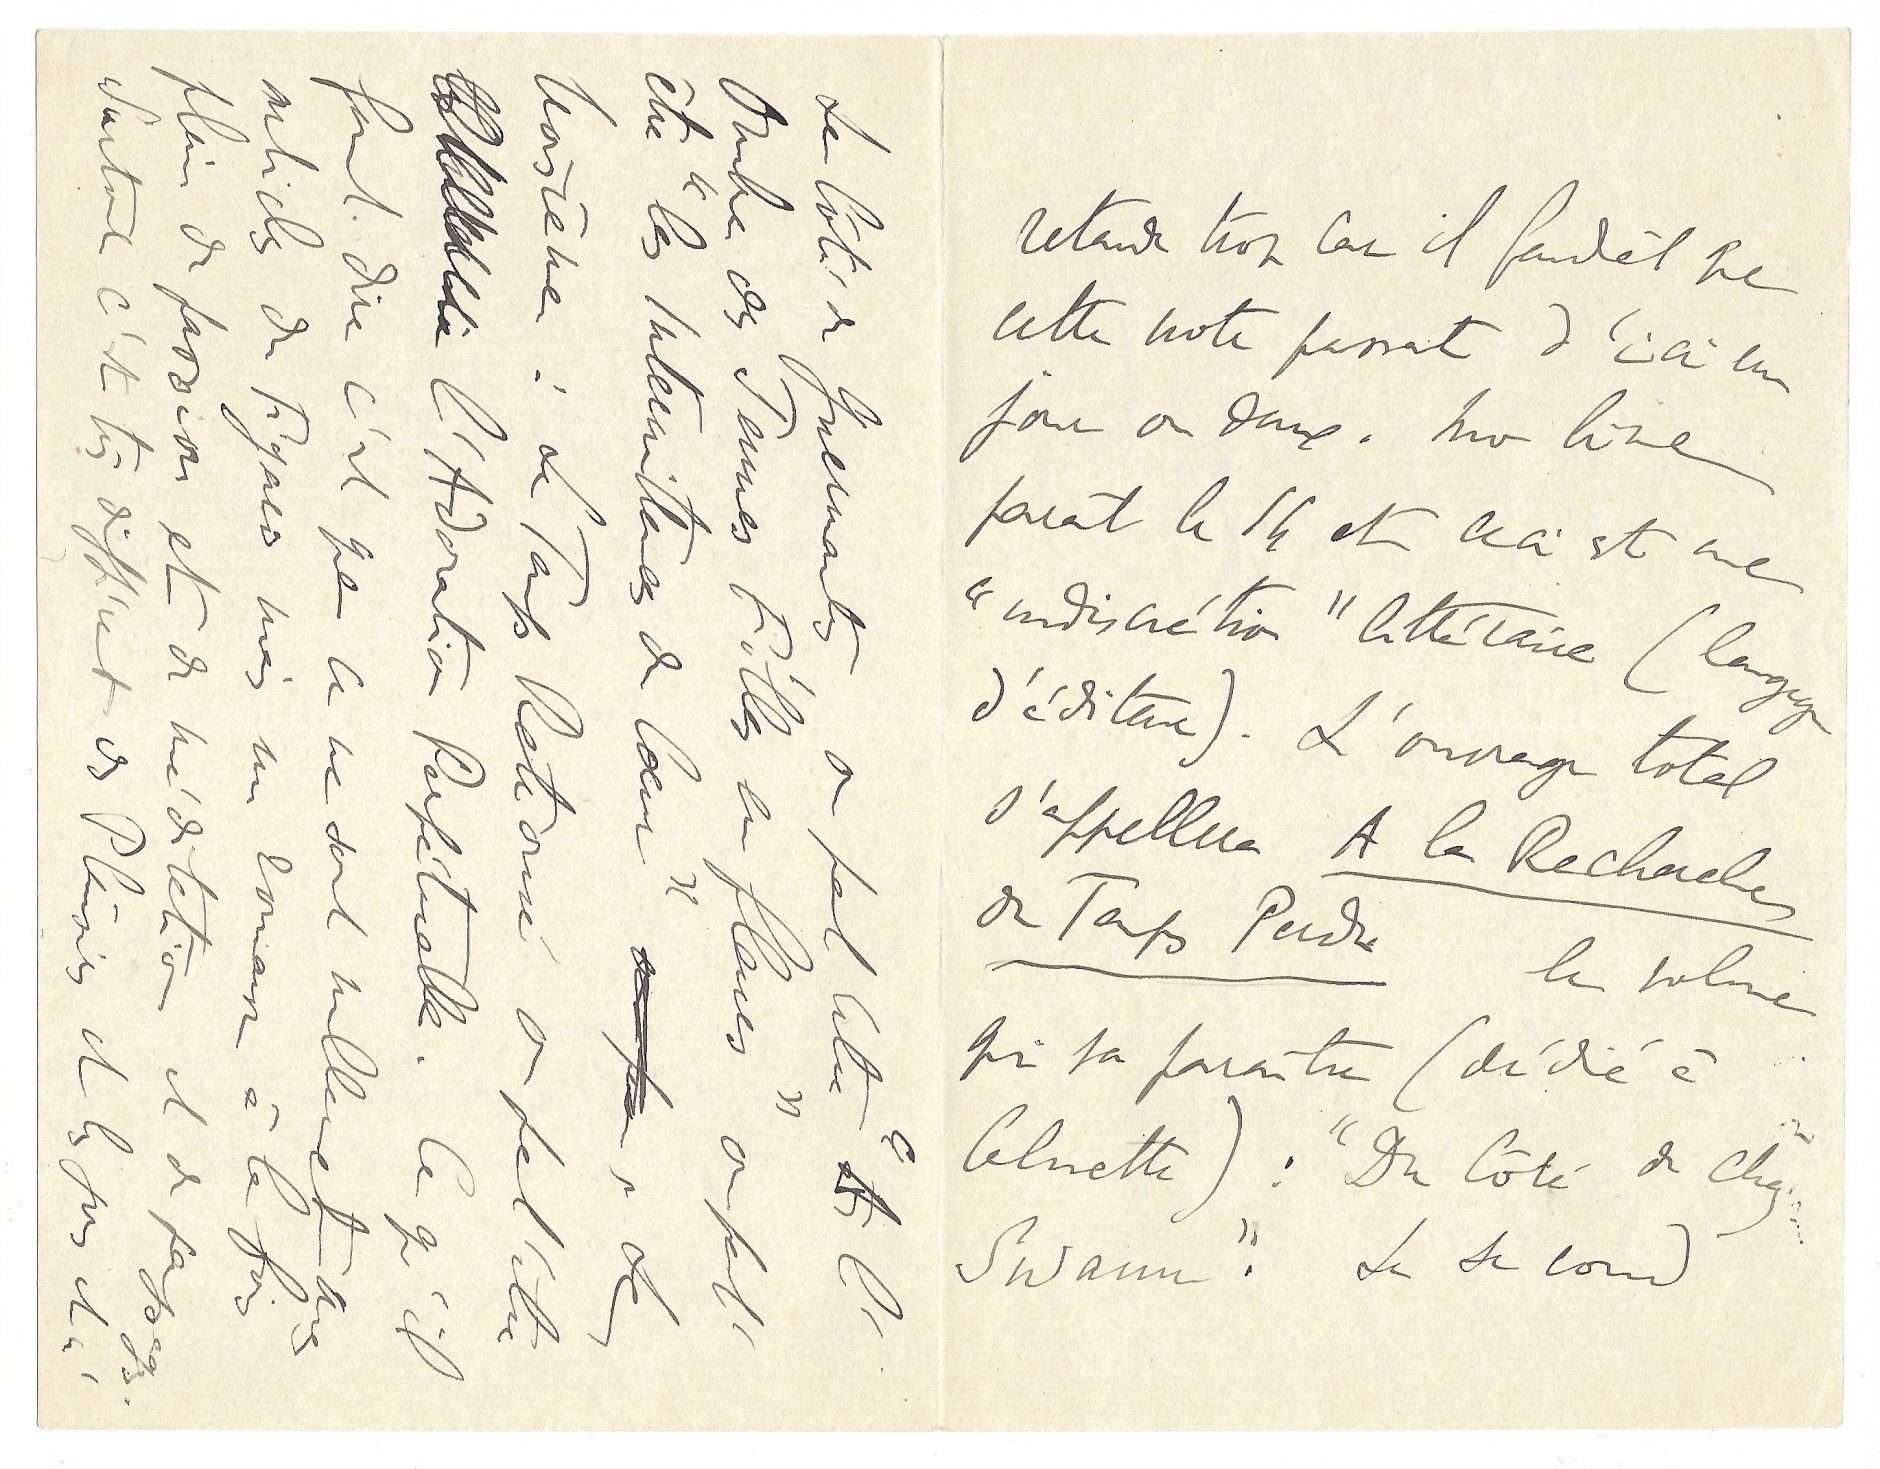 retarde trop car il faudrait que
cette note passât d'ici un
jour ou deux. Mon livre
paraît le 14 et ceci est une
"indiscrétion" littéraire (langage
d'éditeur). L'ouvrage total
s'appellera A la Recherche
du Temps Perdu le volume
qui va paraître (dédié à
Calmette) : "Du Côté de chez
Swann". Le second
Le Côté de Guermantes ou peut'être " l'
Ombre des Jeunes Filles en fleurs" ou peut'
être "les Intermittences du Coeur" Le
troisième : Le Temps Retrouvé ou peut'être
l'Adoration Perpétuelle. Ce qu'il
faut dire c'est que ce ne sont nullement mes
articles du Figaro mais un roman à la fois
plein de passion et de méditation et de paysages.
Surtout c'est très différent des Plaisirs et les Jours et n'